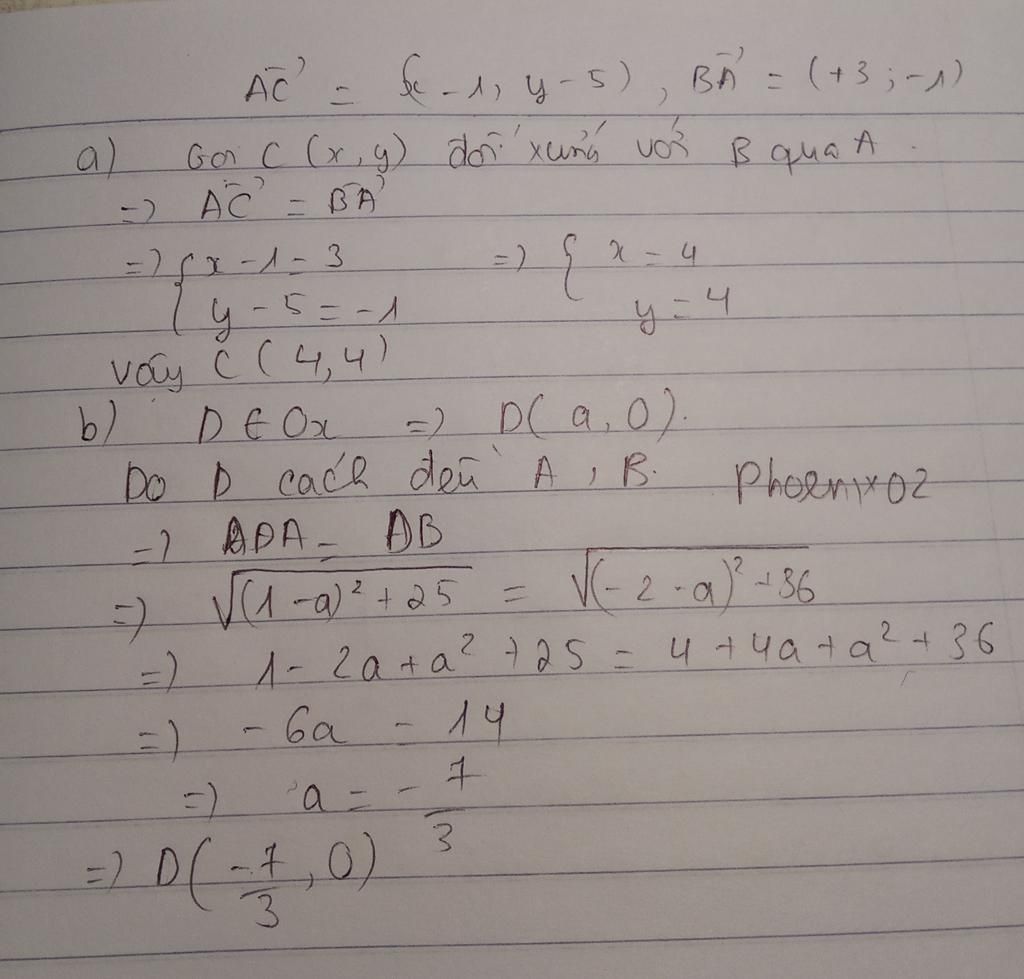 AC⃗ = (x - 1, y - 5), BA⃗ = (+3; -1)
a) Gọi C (x, y) đối xứng với B qua A.
=> AC⃗ = BA⃗
=> { x - 1 = 3 => { x = 4
y - 5 = -1 y = 4
vậy C (4, 4)
b) D ∈ Ox => D( a, 0).
Do D cách đều A, B. Phoenix02
=> DA = DB
=> √(1 - a)² + 25 = √(-2 - a)² + 36
=> 1 - 2a + a² + 25 = 4 + 4a + a² + 36
=> - 6a = 14
=> a = - 7/3
=> D( -7/3, 0)